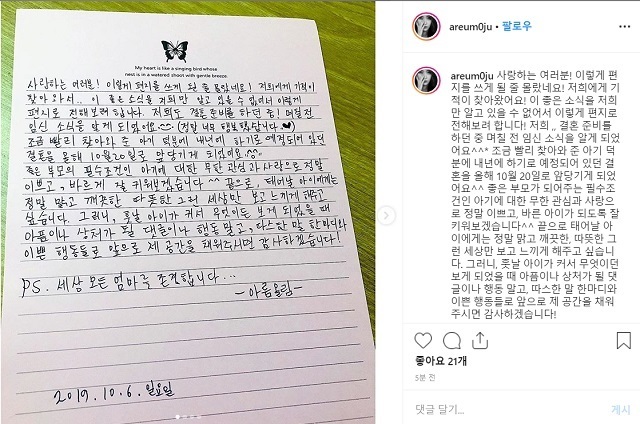 My heart is like a singing bird whose
nest is in a watered shoot with gentle breeze.
사랑하는 여러분! 이렇게 편지를 쓰게 될 줄 몰랐네요! 저희에게 기적이
찾아와서.. 이 좋은 소식을 저희만 알고 있을 수 없어서 이렇게
편지로 전해보려 합니다. 저희도 결혼 준비를 하던 중! 며칠 전
임신 소식을 알게 되었어요 (정말 너무 행복했답니다..)
조금 빨리 찾아와 준 아기 덕분에 내년에 하기로 예정되어 있던
결혼을 올해 10월20일로 앞당기게 되었어요.
좋은 부모의 필수조건인 아기에 대한 무한 관심과 사랑으로 정말
이쁘고, 바르게 잘 키워보겠습니다 ^^ 끝으로, 태어날 아이에게는
정말 맑고 깨끗한 따뜻한 그런 세상만 보고 느끼게 해주고
싶습니다. 그러니, 훗날 아이가 커서 무엇이든 보게 되었을 때
아픔이나 상처가 될 댓글이나 행동 말고, 따스한 말 한마디와
이쁜 행동들로 앞으로 제 공간을 채워주시면 감사하겠습니다!
PS. 세상 모든 엄마를 존경합니다...
-아름올림-
2019.10.6. 일요일
areum0ju • 팔로우
areum0ju 사랑하는 여러분! 이렇게 편
지를 쓰게 될 줄 몰랐네요! 저희에게 기
적이 찾아왔어요! 이 좋은 소식을 저희
만 알고 있을 수 없어서 이렇게 편지로
전해보려 합니다! 저희 ,, 결혼 준비를
하던 중 며칠 전 임신 소식을 알게 되었
어요~^^* 조금 빨리 찾아와 준 아기 덕
분에 내년에 하기로 예정되어 있던 결
혼을 올해 10월 20일로 앞당기게 되었어
요~^^ 좋은 부모가 되어주는 필수조
건인 아기에 대한 무한 관심과 사랑으
로 정말 이쁘고, 바른 아이가 되도록 잘
키워보겠습니다^^ 끝으로 태어날 아
이에게는 정말 맑고 깨끗한, 따뜻한 그
런 세상만 보고 느끼게 해주고 싶습니
다. 그러니, 훗날 아이가 커서 무엇이던
보게 되었을 때 아픔이나 상처가 될 댓
글이나 행동 말고, 따스한 말 한마디와
이쁜 행동들로 앞으로 제 공간을 채워
주시면 감사하겠습니다!
좋아요 21개
5분 전
댓글 달기...
게시